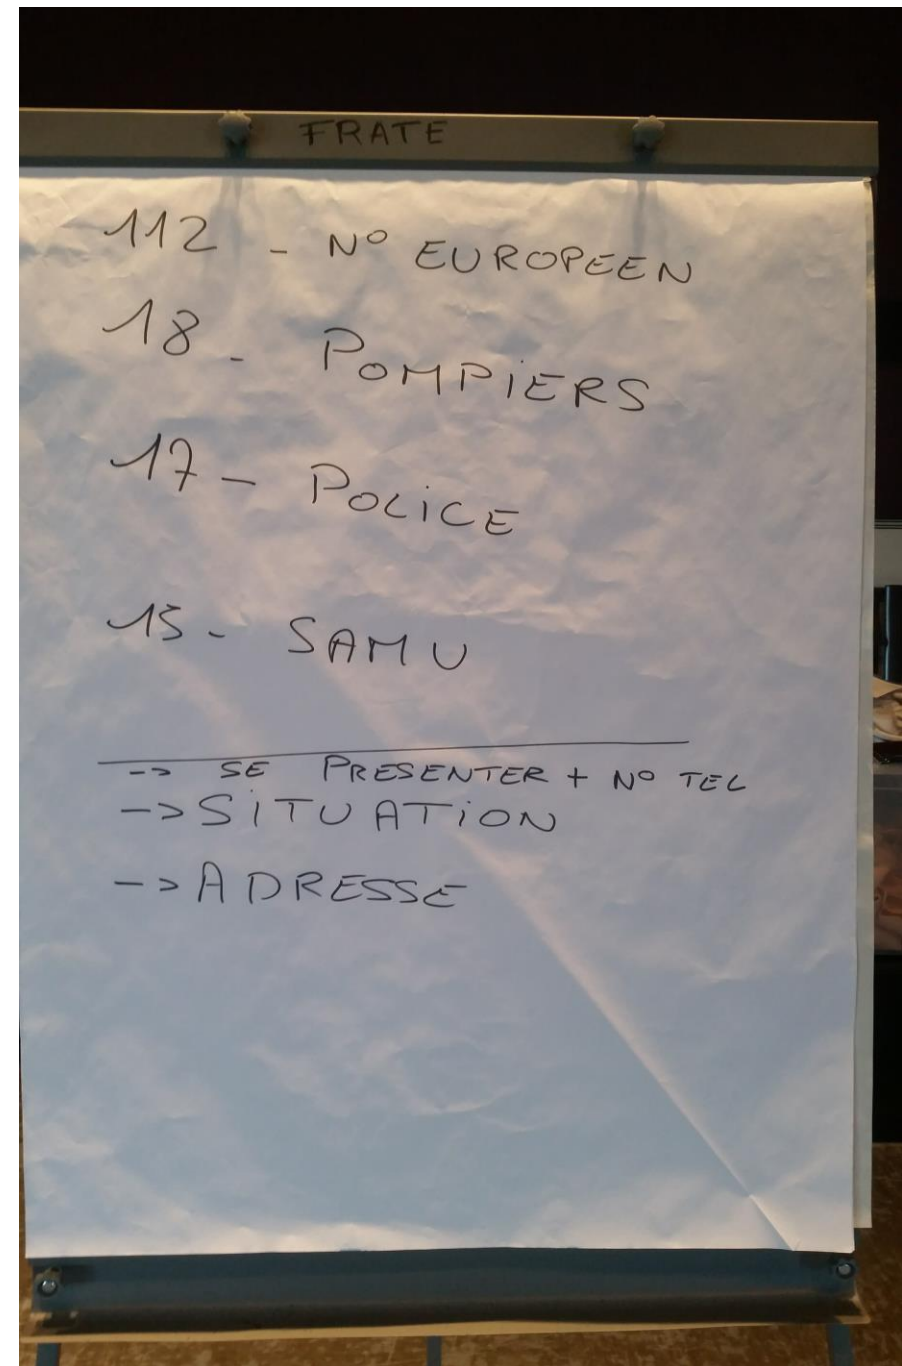 FRATE
112 - N° EUROPEEN
18 - POMPiERS
17 - POLiCE
15 - SAMU
-> SE PRESENTER + N° TEL
-> SiTUATiON
-> ADRESSE